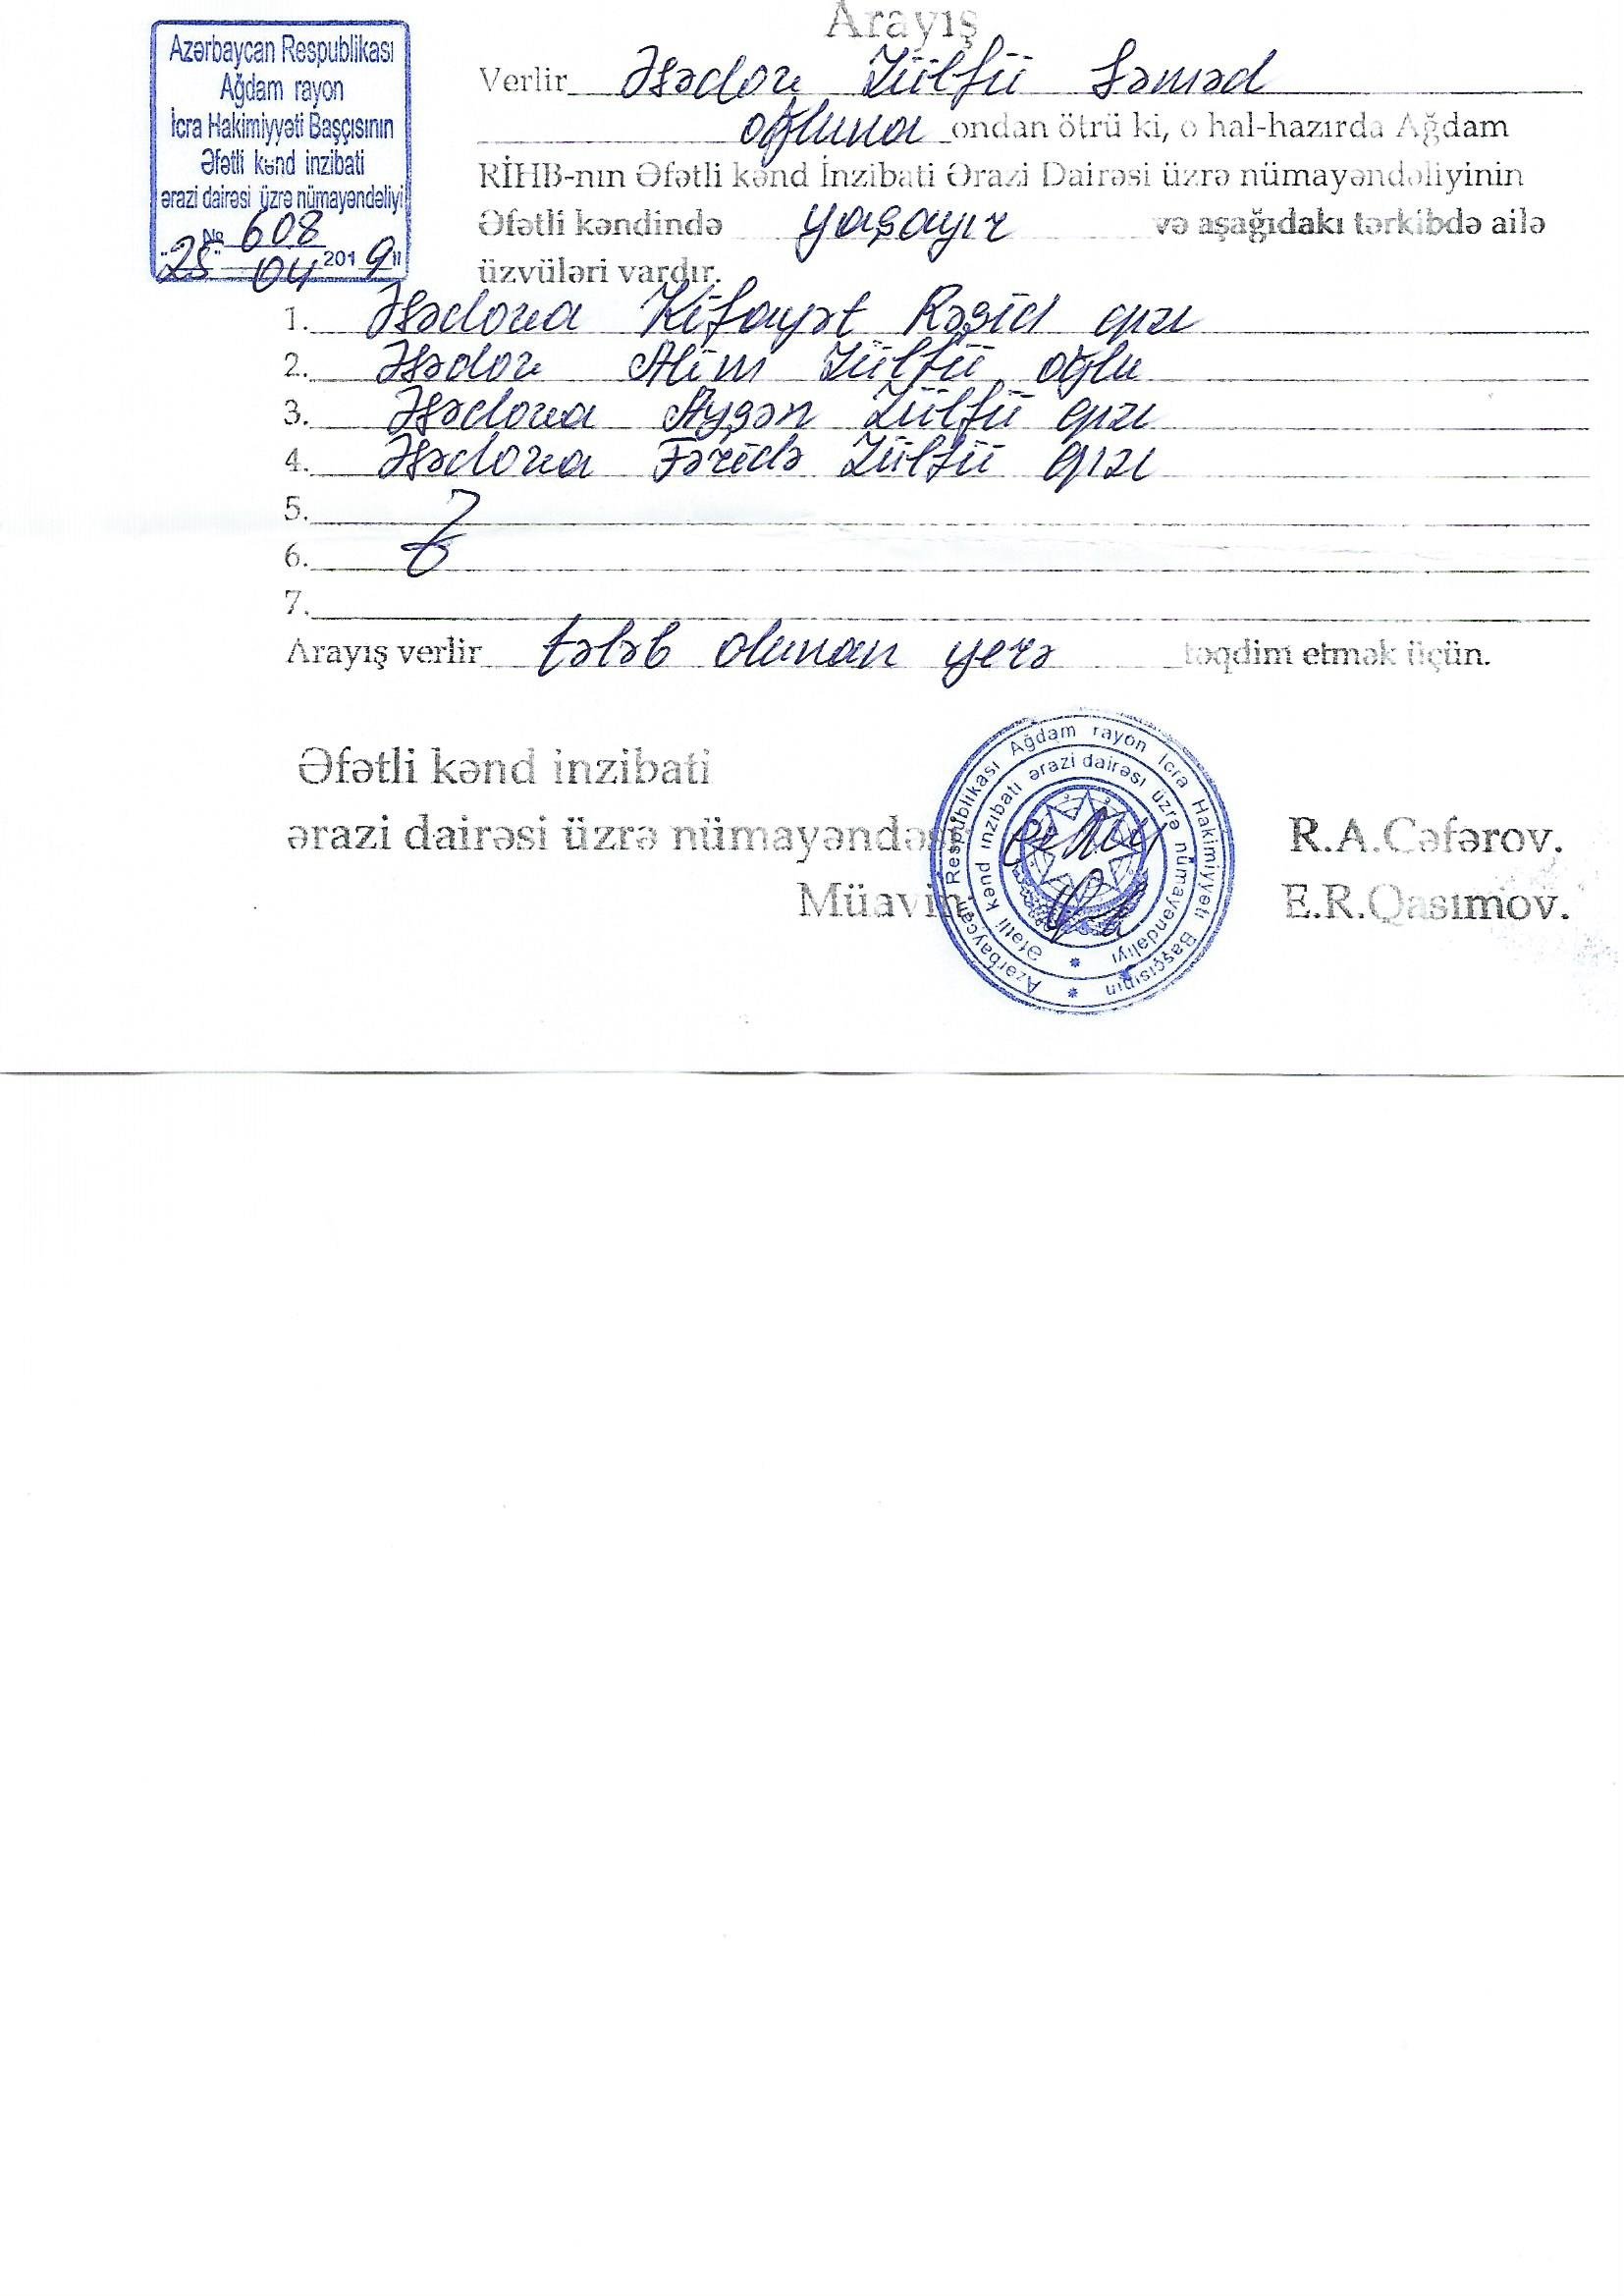 Azərbaycan Respublikası
Ağdam rayon
İcra Hakimiyyəti Başçısının
Əfətli kənd inzibati
ərazi dairəsi üzrə nümayəndəliyi
№ 608
"25" 04 2019
Arayış
Verlir Əsədov Zülfü Səməd
oğluna ondan ötrü ki, o hal-hazırda Ağdam
RİHB-nın Əfətli kənd İnzibati Ərazi Dairəsi üzrə nümayəndəliyinin
Əfətli kəndində yaşayır və aşağıdakı tərkibdə ailə
üzvüləri vardır.
1. Əsədova Kifayət Rəşid qızı
2. Əsədov Alim Zülfü oğlu
3. Əsədova Ayşən Zülfü qızı
4. Əsədova Fəridə Zülfü qızı
5.
6.
7.
Arayış verlir tələb olunan yerə təqdim etmək üçün.
Əfətli kənd inzibati
ərazi dairəsi üzrə nümayəndəsi R.A.Cəfərov.
Müavin: E.R.Qasımov.
Azərbaycan Respublikası Ağdam rayon İcra Hakimiyyəti Başçısının
Əfətli kənd inzibati ərazi dairəsi üzrə nümayəndəliyi